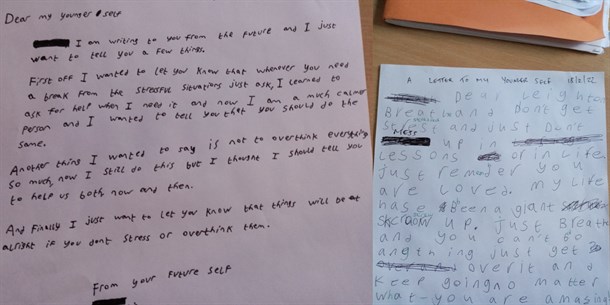 Dear my younger self
I am writing to you from the future and I just
want to tell you a few things.
First off I wanted to let you know that whenever you need
a break from the stressful situations just ask, I learned to
ask for help when I need it and now I am a much calmer
person and I wanted to tell you that you should do the
same.
Another thing I wanted to say is not to overthink everything
so much, now I still do this but I thought I should tell you
to help us both now and then.
And finally I just want to let you know that things will be at
alright if you dont stress or overthink them.
From your future self
A LETTER TO MY YOUNGER SELF
Dear Leighton
Breath and Dont get
Strest and just Don't
Mess up in
Lessons or in Life
just remder you
are Loved. My Life
hase Been a giant
up. Just Breath
and you can't Do
angthing just get
over it and
Keep going no matter
what you are amasing